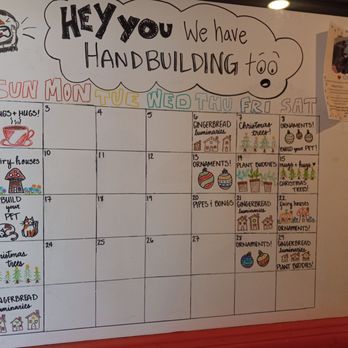 HEY YOU We have
HANDBUILDING too
SUN MON TUE WED THU FRI SAT
MUGS + HUGS!
3 4 5 6 7
GINGERBREAD
luminaries
Christmas
trees!
ORNAMENTS!
BUILD your PET
fairy houses
10 11 12 13 14 15
ORNAMENTS!
PLANT BUDDIES
mugs + hugs
CHRISTMAS
TREES!
BUILD
your
PET
17 18 19 20 21 22
PIPES + BONGS
GINGERBREAD
luminaries
fairy houses
ORNAMENTS!
Christmas
trees
24 25 26 27 28 29
ORNAMENTS!
GINGERBREAD
luminaries
PLANT BUDDIES!
GINGERBREAD
luminaries